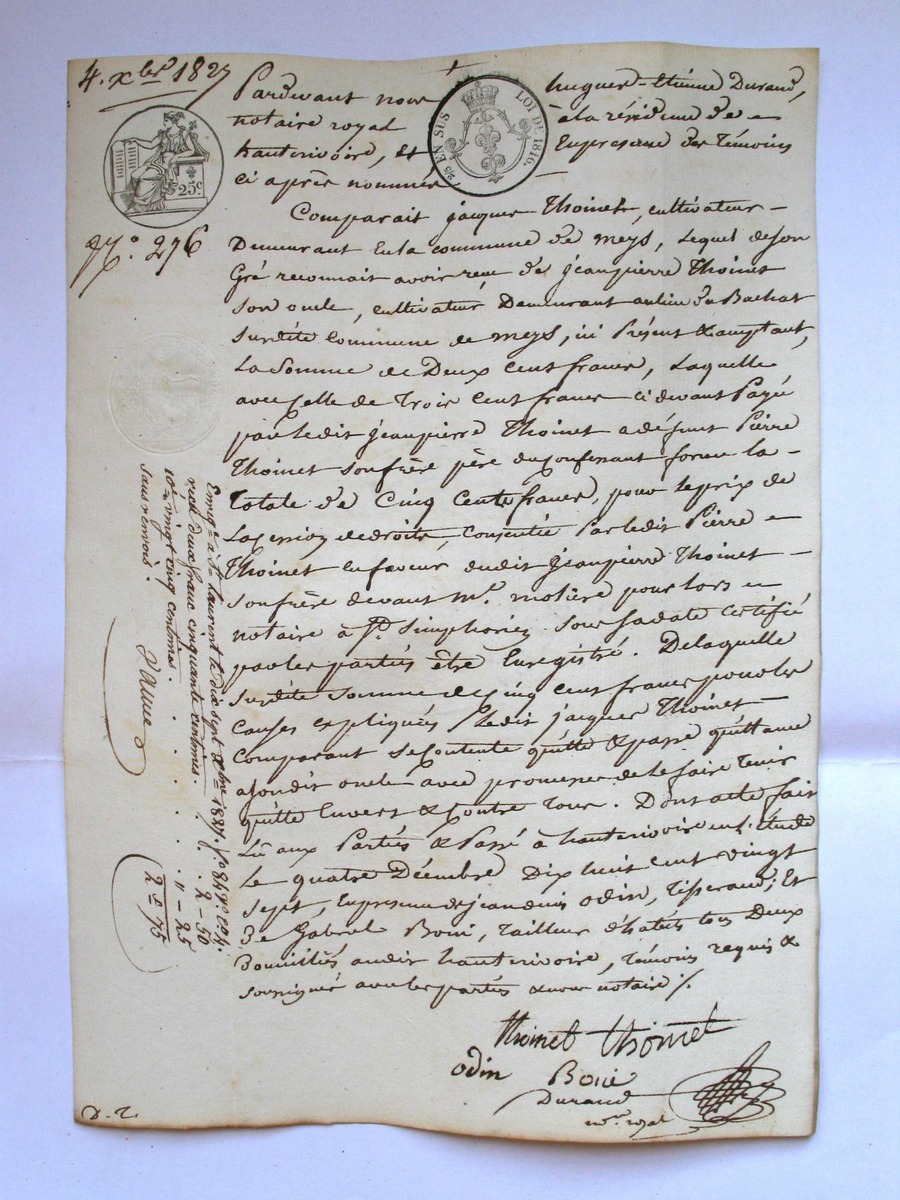 4. xbre 1827
Pardevant nous hugues-étienne Durand,
notaire royal à la résidence de
hauterivoire, et En presence des Témoins
ci après nommés
25 EN SUS LOI DE 1816.
25c
No. 276
Comparait jacques Thoinet, cultivateur
Demeurant En la commune de meys, Lequel de son
Gré reconnait avoir reçu de jeanpierre Thoinet
son oncle, cultivateur, Demeurant au lieu du Bachat
susdite commune de meys, ici Présent & acceptant,
La Somme de Deux Cent francs, Laquelle
avec Celle de Trois Cent francs ci devant Payé
par ledit jeanpierre Thoinet a défunt Pierre
Thoinet son frère père du Confessant forme la
Totale de Cinq Cents francs, pour le prix de
La cession de droits, Consentie Par ledit Pierre
Thoinet en faveur dudit jeanpierre Thoinet
son frère devant Me. molière pour lors
notaire à St. Simphorien sous sa date certifié
par les parties Être Enregistré. De laquelle
susdite somme de Cinq cent francs pour les
Causes expliquées Ledit jacques Thoinet
Comparant se Contente quitte & passe quittance
a sondit oncle avec promesse de le faire tenir
quitte Envers & Contre Tous. Dont acte fait
Lû aux Parties & Passé à hauterivoire en l'étude
Le quatre Décembre Dix huit cent vingt
sept, En presence de jean denis Odin, Tisserand, Et
De Gabriel Boui, Tailleur d'habits tous Deux
Domiciliés audit hauterivoire, Témoins requis &
soussignés avec les parties & nous notaire /.
Thoinet Thoinet
odin Boui
Durand
nre royal
Enregé à St Laurent le dix sept xbre 1827. fo 84 vo c. 4.
reçu deux franc cinquante centimes. 2 - 50
10e vingt cinq centimes. " - 25
sans renvois. 2 = 75
D. T.